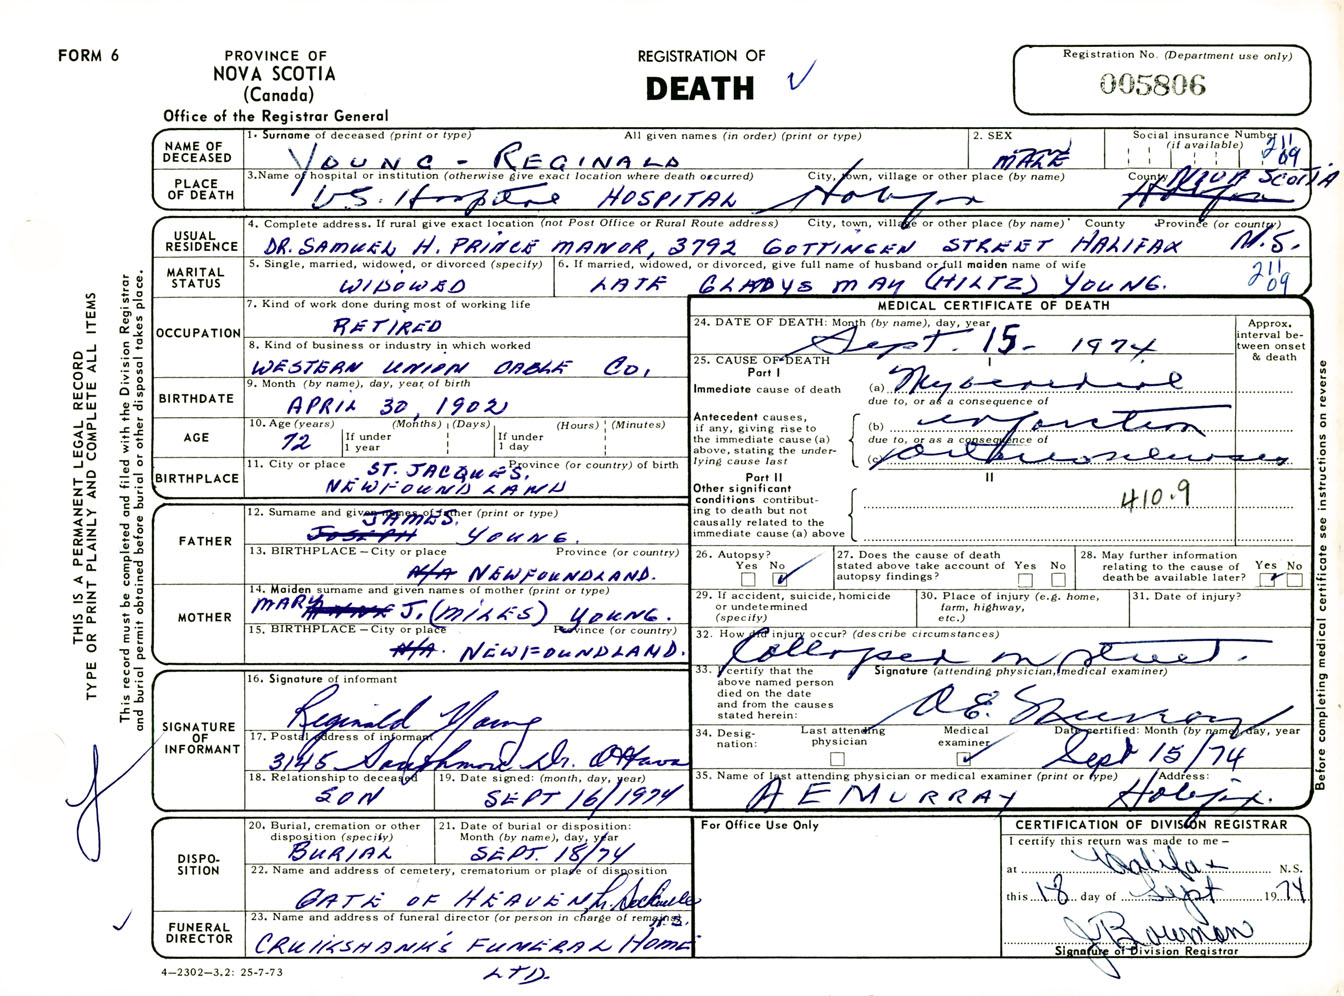 FORM 6
PROVINCE OF
NOVA SCOTIA
(Canada)
Office of the Registrar General
REGISTRATION OF
DEATH
Registration No. (Department use only)
005806
THIS IS A PERMANENT LEGAL RECORD
TYPE OR PRINT PLAINLY AND COMPLETE ALL ITEMS
This record must be completed and filed with the Division Registrar
and burial permit obtained before burial or other disposal takes place.
NAME OF DECEASED
1. Surname of deceased (print or type) All given names (in order) (print or type)
YOUNG - REGINALD
2. SEX
MALE
Social insurance Number (if available)
211
09
PLACE OF DEATH
3. Name of hospital or institution (otherwise give exact location where death occurred) City, town, village or other place (by name) County
V.S. Hospital HOSPITAL Halifax Halifax NOVA SCOTIA
USUAL RESIDENCE
4. Complete address. If rural give exact location (not Post Office or Rural Route address) City, town, village or other place (by name) County Province (or country)
DR. SAMUEL H. PRINCE MANOR, 3792 GOTTINGEN STREET HALIFAX N.S.
MARITAL STATUS
5. Single, married, widowed, or divorced (specify)
WIDOWED
6. If married, widowed, or divorced, give full name of husband or full maiden name of wife
LATE GLADYS MAY (HILTZ) YOUNG.
211
09
OCCUPATION
7. Kind of work done during most of working life
RETIRED
8. Kind of business or industry in which worked
WESTERN UNION CABLE CO.
BIRTHDATE
9. Month (by name), day, year of birth
APRIL 30, 1902
AGE
10. Age (years) (Months) (Days) (Hours) (Minutes)
72
If under 1 year
If under 1 day
BIRTHPLACE
11. City or place Province (or country) of birth
ST. JACQUES,
NEWFOUNDLAND
FATHER
12. Surname and given names of father (print or type)
JAMES.
JOSEPH YOUNG.
13. BIRTHPLACE – City or place Province (or country)
N/A NEWFOUNDLAND.
MOTHER
14. Maiden surname and given names of mother (print or type)
MARY J. (MILES) YOUNG.
15. BIRTHPLACE – City or place Province (or country)
N/A. NEWFOUNDLAND.
SIGNATURE OF INFORMANT
16. Signature of informant
Reginald Young
17. Postal address of informant
3145 Southmore Dr. Ottawa
18. Relationship to deceased
SON
19. Date signed: (month, day, year)
SEPT 16/1974
DISPO-SITION
20. Burial, cremation or other disposition (specify)
BURIAL
21. Date of burial or disposition: Month (by name), day, year
SEPT. 18/74
22. Name and address of cemetery, crematorium or place of disposition
GATE OF HEAVEN, Lr. Sackville
N.S.
FUNERAL DIRECTOR
23. Name and address of funeral director (or person in charge of remains)
CRUIKSHANK'S FUNERAL HOME
LTD.
4–2302–3.2: 25-7-73
MEDICAL CERTIFICATE OF DEATH
24. DATE OF DEATH: Month (by name), day, year
Sept. 15- 1974
Approx. interval be-tween onset & death
25. CAUSE OF DEATH
Part I
I
Immediate cause of death
(a) Myocardial
due to, or as a consequence of
Antecedent causes, if any, giving rise to the immediate cause (a) above, stating the under-lying cause last
(b) infarction
due to, or as a consequence of
(c) arteriosclerosis
Part II
II
Other significant conditions contribut-ing to death but not causally related to the immediate cause (a) above
410.9
26. Autopsy?
Yes No
27. Does the cause of death stated above take account of autopsy findings?
Yes No
28. May further information relating to the cause of death be available later?
Yes No
29. If accident, suicide, homicide or undetermined (specify)
30. Place of injury (e.g. home, farm, highway, etc.)
31. Date of injury?
32. How did injury occur? (describe circumstances)
Collapsed on street.
33. I certify that the above named person died on the date and from the causes stated herein:
Signature (attending physician, medical examiner)
A.E. Murray
34. Desig-nation:
Last attending physician
Medical examiner
Date certified: Month (by name), day, year
Sept 15/74
35. Name of last attending physician or medical examiner (print or type) Address:
A E MURRAY Halifax.
Before completing medical certificate see instructions on reverse
For Office Use Only
CERTIFICATION OF DIVISION REGISTRAR
I certify this return was made to me –
at Halifax N.S.
this 18 day of Sept 1974
J Bowman
Signature of Division Registrar